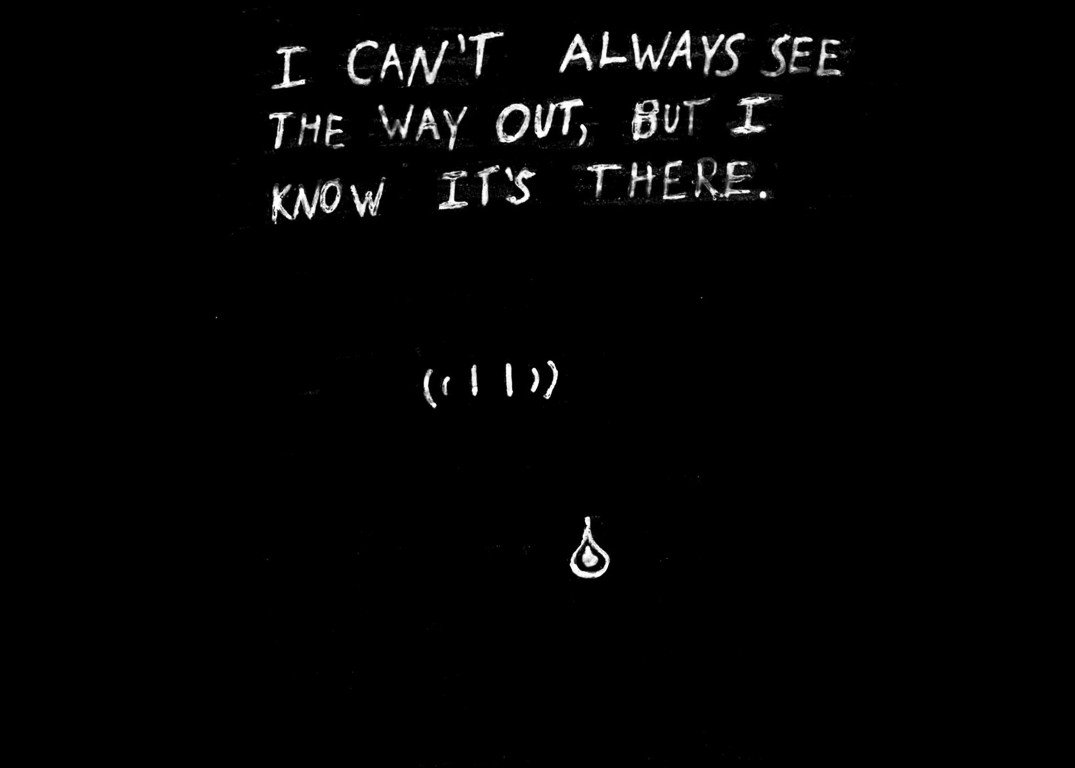 I CAN'T ALWAYS SEE
THE WAY OUT, BUT I
KNOW IT'S THERE.